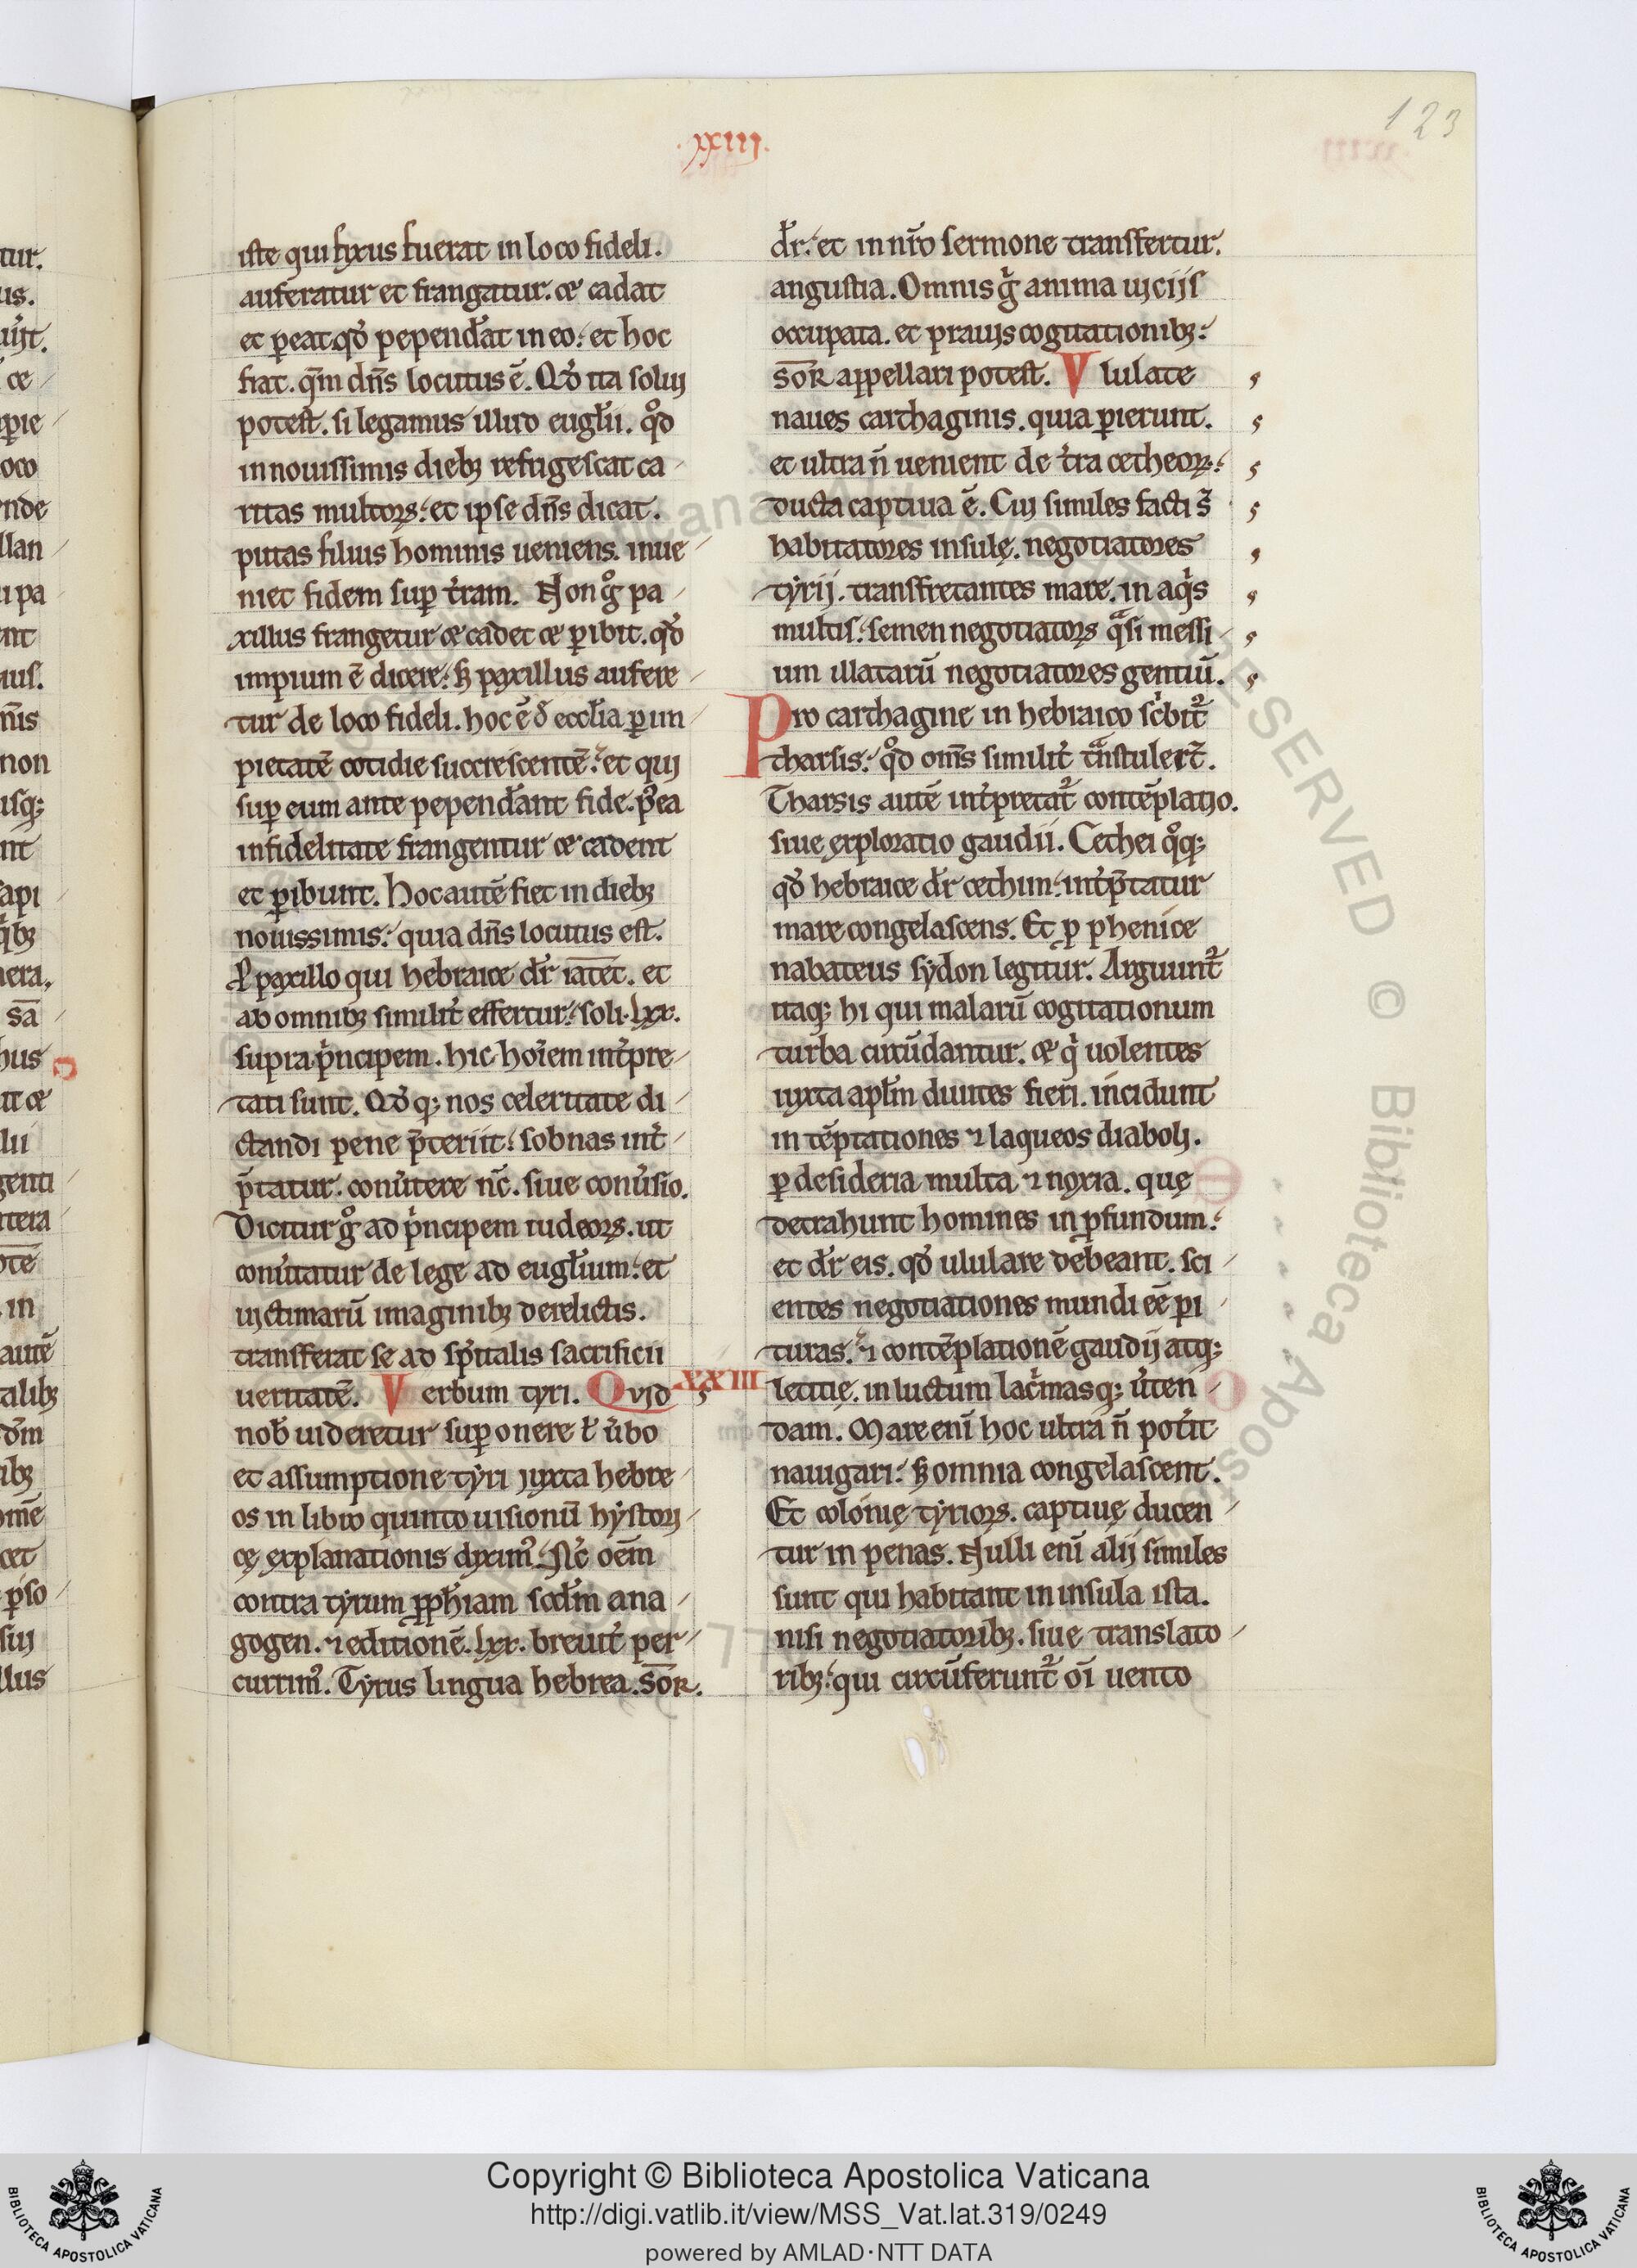 123
.xxiii.
iste qui fixus fuerat in loco fideli.
auferatur et frangatur. ⁊ cadat
et ꝑeat. qd̓ pepend̓at in eo. et hoc
fiat. qm̄ dn̄s locutus ē. Qd̓ ita solui
potest. si legamus illud eugl̓ii. qͦd
in nouissimis dieb; refrigescat ca
ritas multoꝝ. et ipse dn̄s dicat.
putas filius hominis ueniens. inue
niet fidem suꝑ t̓ram. Non gͦ pa
xillus frangetur ⁊ cadet ⁊ ꝑibit. qd̓
impium ē dicere. sꝫ paxillus aufere
tur de loco fideli. hoc ē đ eccl̓ia ꝑ im
pietatē cotidie succrescentē. et qui
suꝑ eum ante pepend̓ant fide. p̓ea
infidelitate frangentur ⁊ cadent
et ꝑibunt. Hoc autē fiet in dieb;
nouissimis. quia dn̄s locutus est.
P paxillo qui hebraice dr̓ iatet. et
ab omnib; similit̓ effertur. soli .lxx.
supra pͥncipem. hic hoīem int̓pre
tati sunt. Qd̓ q; nos celeritate di
ctandi pene p̄teriit. sobnas int̓
p̄tatur. conu̓tere nc̄. siue conu̓sio.
Dicitur gͦ ad pͥncipem iudeoꝝ. ut
conu̓tatur de lege ad eugl̓ium. et
uictimarū imaginib; derelictis.
transferat se ad sp̓italis sacrificii
ueritatē. Verbum tyri. Qvid
XXIII
nob̓ uideretur suꝑ onere ł u̓bo
et assumptione tyri iuxta hebre
os in libro quinto uisionū hystori
cę explanationis diximꝰ. Nc̄ oēm
contra tyrum ꝓph̓iam scd̓m ana
gogen. ⁊ editionē .lxx. breuit̓ per
currimꝰ. Tyrus lingua hebrea. sor̄.
dr̓. et in nr̄o sermone transfertur.
angustia. Omnis gͥ anima uiciis
occupata. et prauis cogitationib;.
sor̄ appellari potest. Vlulate
naues carthaginis. quia ꝑierunt.
et ultra n̄ uenient de t̓ra cetheoꝝ.
ducta captiua ē. Cui similes facti s̄
habitatores insulę. negotiatores
tyrij. transfretantes mare. in aqͥs
multis. semen negotiatoꝝ qͣsi messi
um illatarū negotiatores gentiū.
Pro carthagine in hebraico sc̓bit̓
tharsis. qͦd om̄s similit̓ tͣnstuler̄t.
Tharsis autē int̓pretat̓ contēplatio.
siue exploratio gaudii. Cethei qͦq;
qd̓ hebraice dr̓ cethim. int̓p̄tatur
mare congelascens. Et ꝑ phenice
nabateus sydon legitur. Arguunt̓
itaq; hi qui malarū cogitationum
turba circūdantur. ⁊ qͥ uolentes
iuxta apl̓m diuites fieri. incidunt
in tēptationes ⁊ laqueos diaboli.
ꝑ desideria multa ⁊ noxia. quę
detrahunt homines in ꝓfundum.
et dr̓ eis. qd̓ ululare debeant. sci
entes negotiationes mundi eē ꝑi
turas. ⁊ contēplationē gaudij atq;
letitię. in luctum lacͥmasq; u̓ten
dam. Mare enī hoc ultra n̄ pot̓it
nauigari. sꝫ omnia congelascent.
Et colonię tyrioꝝ. captiuę ducen
tur in penas. Nulli enī alij similes
sunt qui habitant in insula ista.
nisi negotiatorib;. siue translato
rib;. qui circūferunt̓ oī uento
Copyright © Biblioteca Apostolica Vaticana
http://digi.vatlib.it/view/MSS_Vat.lat.319/0249
powered by AMLAD·NTT DATA
BIBLIOTECA APOSTOLICA VATICANA
BIBLIOTECA APOSTOLICA VATICANA